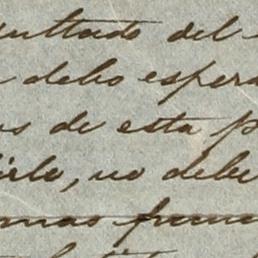 ultado del
debo esper
s de esta p
irlo, no debe
mas